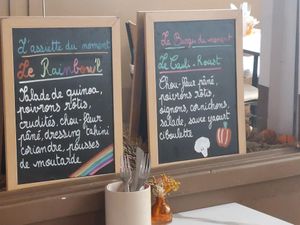 L'assiette du moment
Le Rainbow'l
Salade de quinoa,
poivrons rôtis,
crudités, chou-fleur
pané, dressing tahini
coriandre, pousses
de moutarde
Le Burger du moment
Le Cauli-Roast
Chou-fleur pané,
poivrons rôtis,
oignons, cornichons,
salade, sauce yaourt
ciboulette